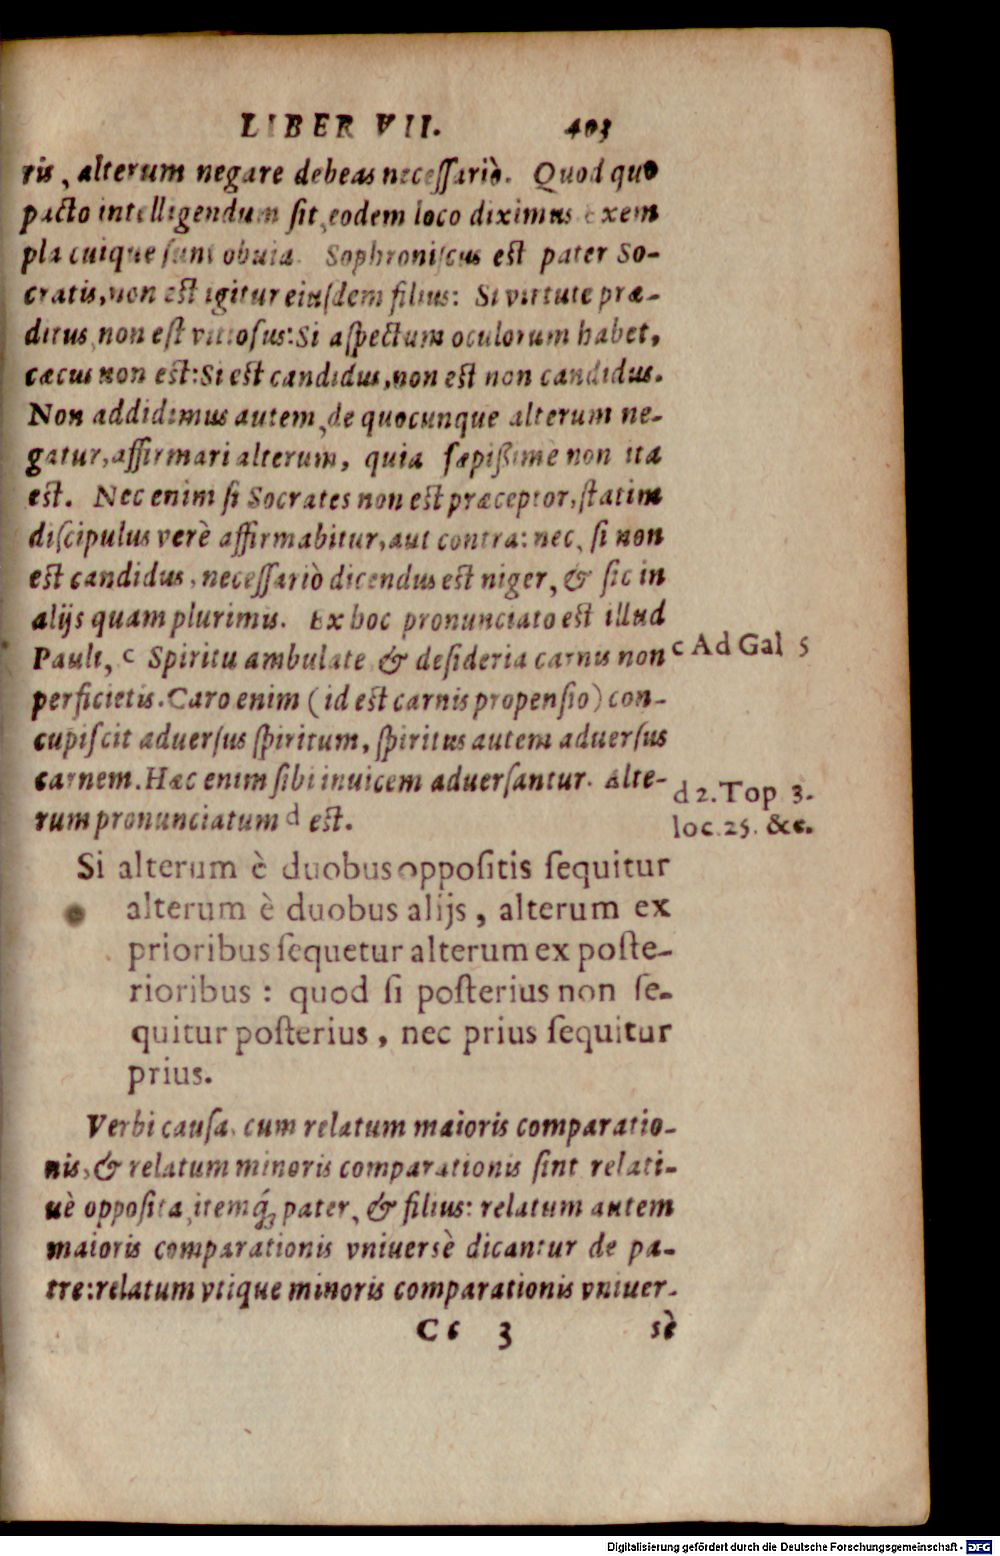 LIBER VII. 403
ris, alterum negare debeas necessariò. Quod quo
pacto intelligendum sit, eodem loco diximus exem
pla cuique sunt obuia. Sophroniscus est pater So-
cratis, non est igitur eiusdem filius: Si virtute præ-
ditus, non est vitiosus: Si aspectum oculorum habet,
cæcus non est: Si est candidus, non est non candidus.
Non addidimus autem, de quocunque alterum ne-
gatur, affirmari alterum, quia sæpißimè non ita
est. Nec enim si Socrates non est præceptor, statim
discipulus verè affirmabitur, aut contra: nec, si non
est candidus, necessariò dicendus est niger, & sic in
alijs quam plurimis. Ex hoc pronunciato est illud
Pauli, c Spiritu ambulate & desideria carnis non
c Ad Gal 5
perficietis. Caro enim (id est carnis propensio) con-
cupiscit aduersus spiritum, spiritus autem aduersus
carnem. Hæc enim sibi inuicem aduersantur. Alte-
d 2. Top 3.
rum pronunciatum d est.
loc. 25. &c.
Si alterum è duobus oppositis sequitur
alterum è duobus alijs, alterum ex
prioribus sequetur alterum ex poste-
rioribus: quod si posterius non se-
quitur posterius, nec prius sequitur
prius.
Verbi causa, cum relatum maioris comparatio-
nis, & relatum minoris comparationis sint relati-
uè opposita, itemq́; pater, & filius: relatum autem
maioris comparationis vniuersè dicantur de pa-
tre: relatum vtique minoris comparationis vniuer-
Cc 3 sè
Digitalisierung gefördert durch die Deutsche Forschungsgemeinschaft - DFG